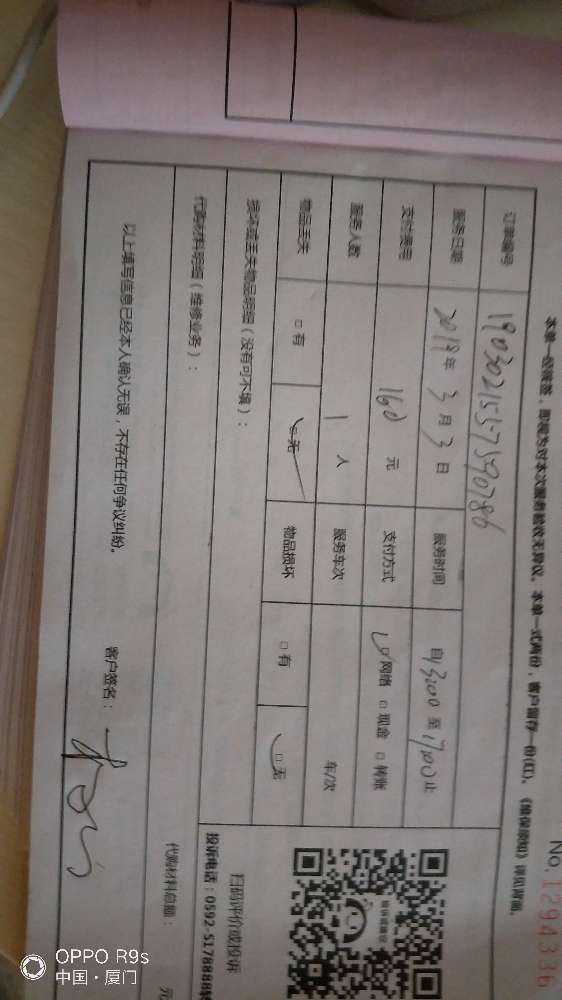 No.1294336
本单一经签签，即视为对本次服务验收无异议。本单一式两份，客户留存一份(红)。《维保须知》详见背面。
订单编号 1903021557590786
服务日期 2019年3月3日 服务时间 自13:00至17:00止
支付费用 160元 支付方式 ☑网络 □现金 □转账
服务人数 1人 服务车次 车/次
物品丢失 □有 ☑无 物品损坏 □有 ☑无
损坏或丢失物品明细（没有可不填）：
代购材料明细（维修业务）：
代购材料总额： 元
以上填写信息已经本人确认无误，不存在任何争议纠纷。 客户签名：
扫码评价或投诉
投诉电话：0592-5178888转
OPPO R9s
中国·厦门